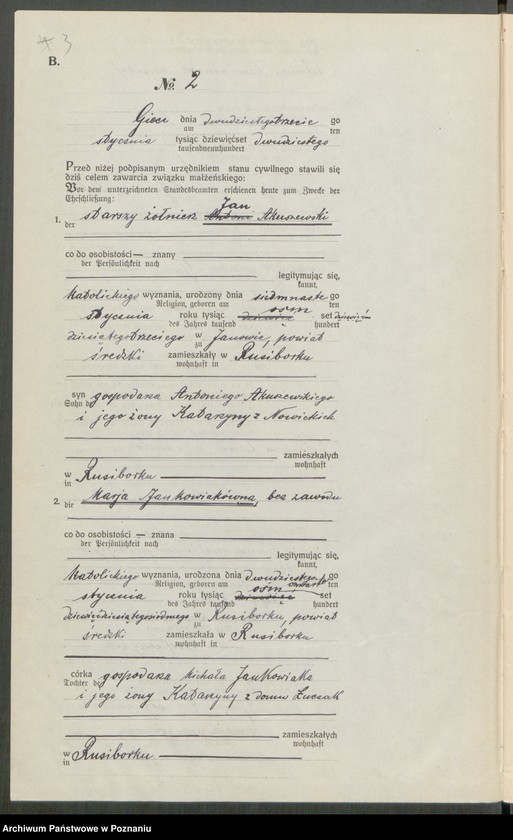 3
B.
No. 2
Giecz dnia dwudziestegotrzecie go
am ten
stycznia tysiąc dziewięćset dwudziestego
tausendneunhundert
Przed niżej podpisanym urzędnikiem stanu cywilnego stawili się
dziś celem zawarcia związku małżeńskiego:
Vor dem unterzeichneten Standesbeamten erschienen heute zum Zwecke der
Eheschließung:
Jan
1. starszy żołnierz Antoni Akuszewski
der
co do osobistości — znany
der Persönlichkeit nach
legitymując się,
kannt,
katolickiego wyznania, urodzony dnia siedmnaste go
Religion, geboren am ten
ośm
stycznia roku tysiąc dziewięć set dziewięć
des Jahres tausend hundert
dziesiątegotrzeciego w Janowie, powiat
zu
średzki zamieszkały w Rusiborku
wohnhaft in
syn gospodarza Antoniego Akuszewskiego
Sohn des
i jego żony Katarzyny z Nowickich
zamieszkałych
wohnhaft
w Rusiborku
in
2. Marja Jankowiakówna, bez zawodu
die
co do osobistości — znana
der Persönlichkeit nach
legitymując się,
kannt,
katolickiego wyznania, urodzona dnia dwudziestego go
Religion, geboren am czwarte ten
ośm
stycznia roku tysiąc dziewięć set
des Jahres tausend hundert
dziewięćdziesiątegosiódmego w Rusiborku, powiat
zu
średzki zamieszkała w Rusiborku
wohnhaft in
córka gospodarza Michała Jankowiaka
Tochter des
i jego żony Katarzyny z domu Łuczak
zamieszkałych
wohnhaft
w Rusiborku
in
Archiwum Państwowe w Poznaniu